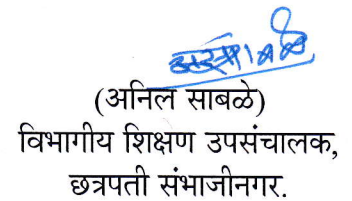 (अनिल साबळे)
विभागीय शिक्षण उपसंचालक,
छत्रपती संभाजीनगर.